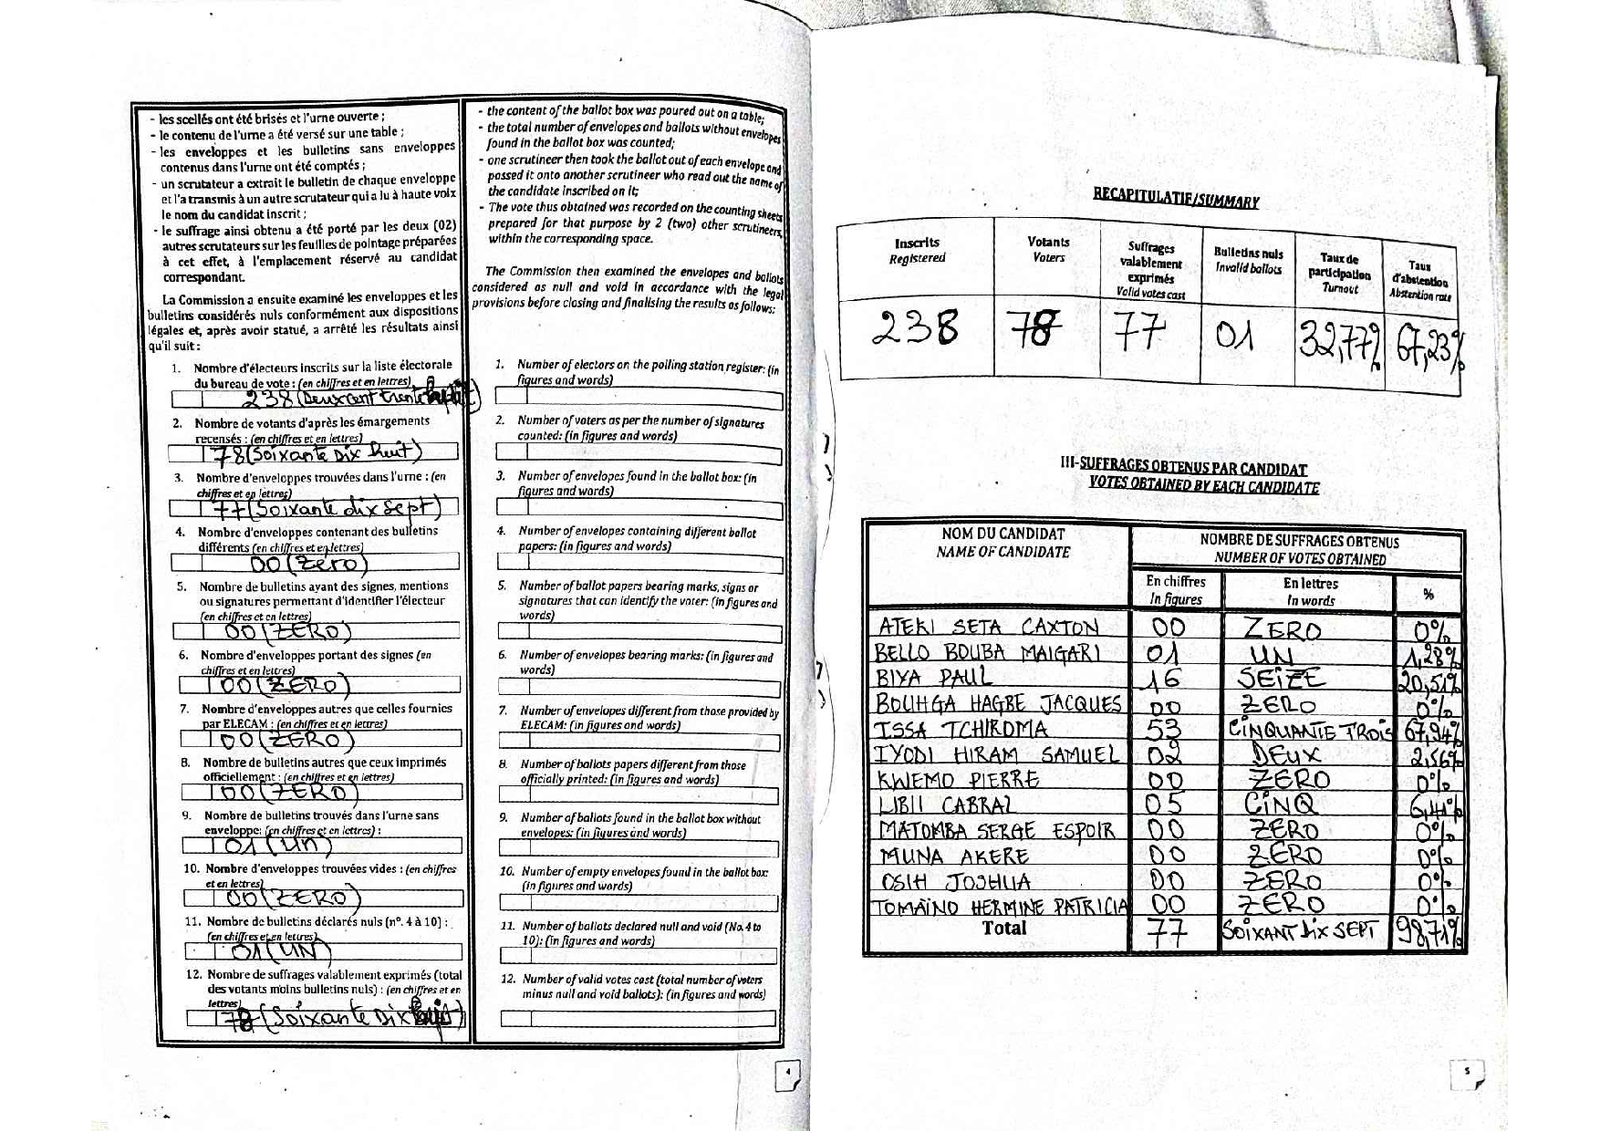 - les scellés ont été brisés et l'urne ouverte ;
- le contenu de l'urne a été versé sur une table ;
- les enveloppes et les bulletins sans enveloppes
contenus dans l'urne ont été comptés ;
- un scrutateur a extrait le bulletin de chaque enveloppe
et l'a transmis à un autre scrutateur qui a lu à haute voix
le nom du candidat inscrit ;
- le suffrage ainsi obtenu a été porté par les deux (02)
autres scrutateurs sur les feuilles de pointage préparées
à cet effet, à l'emplacement réservé au candidat
correspondant.
La Commission a ensuite examiné les enveloppes et les
bulletins considérés nuls conformément aux dispositions
légales et, après avoir statué, a arrêté les résultats ainsi
qu'il suit :
1. Nombre d'électeurs inscrits sur la liste électorale
du bureau de vote : (en chiffres et en lettres)
238 (Deux cent trente huit)
2. Nombre de votants d'après les émargements
recensés : (en chiffres et en lettres)
78 (Soixante Dix huit)
3. Nombre d'enveloppes trouvées dans l'urne : (en
chiffres et en lettres)
77 (Soixante dix Sept)
4. Nombre d'enveloppes contenant des bulletins
différents (en chiffres et en lettres)
00 (Zero)
5. Nombre de bulletins ayant des signes, mentions
ou signatures permettant d'identifier l'électeur
(en chiffres et en lettres)
00 (ZERO)
6. Nombre d'enveloppes portant des signes (en
chiffres et en lettres)
00 (ZERO)
7. Nombre d'enveloppes autres que celles fournies
par ELECAM : (en chiffres et en lettres)
00 (ZERO)
8. Nombre de bulletins autres que ceux imprimés
officiellement : (en chiffres et en lettres)
00 (ZERO)
9. Nombre de bulletins trouvés dans l'urne sans
enveloppe: (en chiffres et en lettres) :
01 (Un)
10. Nombre d'enveloppes trouvées vides : (en chiffres
et en lettres)
00 (ZERO)
11. Nombre de bulletins déclarés nuls (n°. 4 à 10) :
(en chiffres et en lettres)
01 (UN)
12. Nombre de suffrages valablement exprimés (total
des votants moins bulletins nuls) : (en chiffres et en
lettres)
(Soixante Dix
- the content of the ballot box was poured out on a table;
- the total number of envelopes and ballots without envelopes
found in the ballot box was counted;
- one scrutineer then took the ballot out of each envelope and
passed it onto another scrutineer who read out the name of
the candidate inscribed on it;
- The vote thus obtained was recorded on the counting sheets
prepared for that purpose by 2 (two) other scrutineers,
within the corresponding space.
The Commission then examined the envelopes and ballots
considered as null and void in accordance with the legal
provisions before closing and finalising the results as follows:
1. Number of electors on the polling station register: (in
figures and words)
2. Number of voters as per the number of signatures
counted: (in figures and words)
3. Number of envelopes found in the ballot box: (in
figures and words)
4. Number of envelopes containing different ballot
papers: (in figures and words)
5. Number of ballot papers bearing marks, signs or
signatures that can identify the voter: (in figures and
words)
6. Number of envelopes bearing marks: (in figures and
words)
7. Number of envelopes different from those provided by
ELECAM: (in figures and words)
8. Number of ballots papers different from those
officially printed: (in figures and words)
9. Number of ballots found in the ballot box without
envelopes: (in figures and words)
10. Number of empty envelopes found in the ballot box:
(in figures and words)
11. Number of ballots declared null and void (No. 4 to
10): (in figures and words)
12. Number of valid votes cast (total number of voters
minus null and void ballots): (in figures and words)
4
RECAPITULATIF/SUMMARY
Inscrits Registered | Votants Voters | Suffrages valablement exprimés Valid votes cast | Bulletins nuls Invalid ballots | Taux de participation Turnout | Taux d'abstention Abstention rate
238 78 77 01 32,77% 67,23%
III-SUFFRAGES OBTENUS PAR CANDIDAT
VOTES OBTAINED BY EACH CANDIDATE
NOM DU CANDIDAT NOMBRE DE SUFFRAGES OBTENUS
NAME OF CANDIDATE NUMBER OF VOTES OBTAINED
En chiffres En lettres %
In figures In words
ATEKI SETA CAXTON 00 ZERO 0%
BELLO BOUBA MAIGARI 01 UN 1,28%
BIYA PAUL 16 SEIZE 20,51%
BOUHGA HAGBE JACQUES 00 ZERO 0%
ISSA TCHIROMA 53 CINQUANTE TROIS 67,94%
IYODI HIRAM SAMUEL 02 DEUX 2,56%
KWEMO PIERRE 00 ZERO 0%
LIBII CABRAL 05 CINQ 6,41%
MATOMBA SERGE ESPOIR 00 ZERO 0%
MUNA AKERE 00 ZERO 0%
OSIH JOSHUA 00 ZERO 0%
TOMAÏNO HERMINE PATRICIA 00 ZERO 0%
Total 77 SOIXANT DIX SEPT 98,71%
5